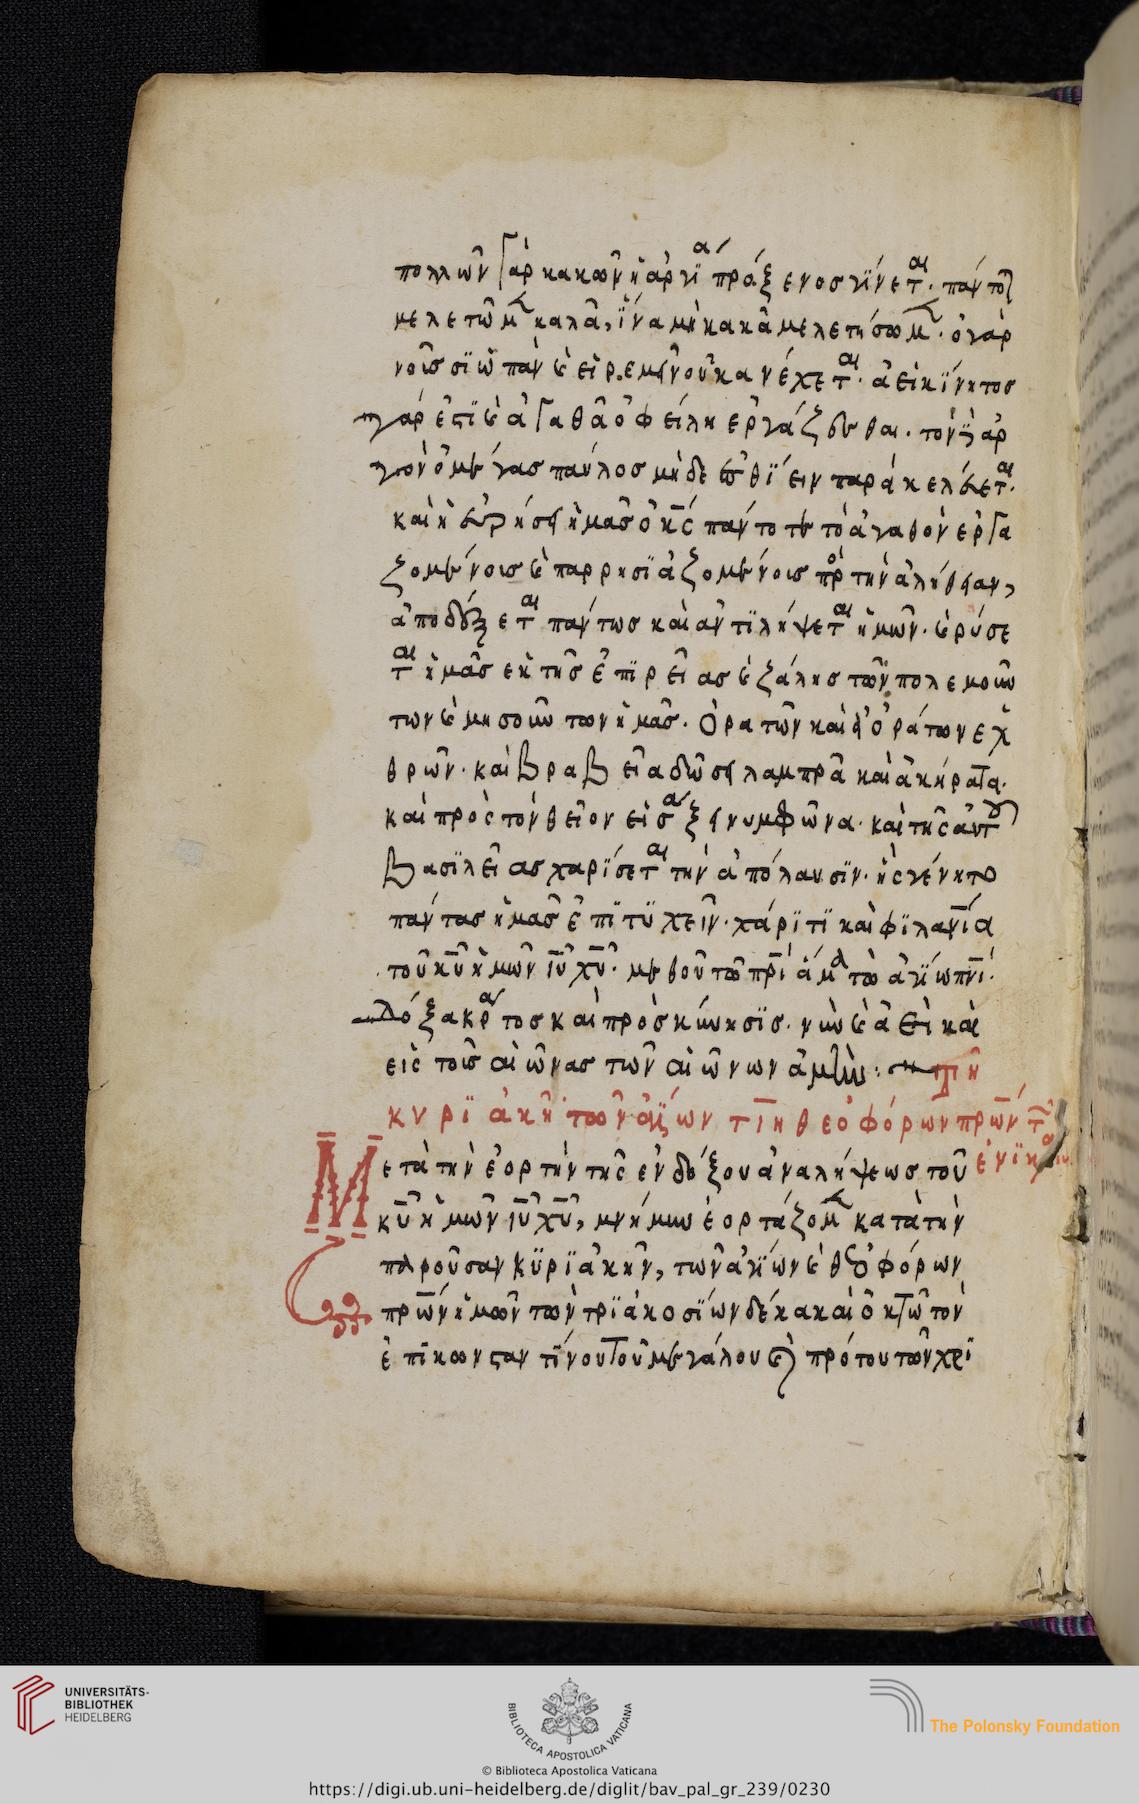 πολλῶν γὰρ κακῶν ἡ ἀργία πρόξενος γίνεται· πάντοτε
μελετῶμεν καλὰ, ἵνα μὴ κακὰ μελετήσωμεν· ὁ γὰρ
νοῦς σιωπᾶν καὶ εἰρεμεῖν οὐκ ἀνέχεται· ἀεικίνητος
γάρ ἐστι καὶ ἀγαθὰ ὀφείλη ἐργάζεσθαι· τὸν γὰρ ἀρ
γὸν ὁ μέγας παῦλος μηδὲ ἐσθίειν παρακελεύεται·
καὶ ἡ εὐρήσει ἡμᾶς ὁ κς πάντοτε τὸ ἀγαθὸν ἐργα
ζομένοις καὶ παρρησιαζομένοις πρὸς τὴν ἀλήθειαν,
ἀποδέξεται πάντως καὶ ἀντιλήψεται ἡμῶν· καὶ ρύσε
ται ἡμᾶς ἐκ τῆς ἐπιρείας καὶ ζάλης τῶν πολεμούν
των καὶ μησούντων ἡμᾶς· ὁρατῶν καὶ ἀοράτων ἐχ
θρῶν· καὶ βραβεῖα δώσει λαμπρὰ καὶ ἀκήρατα·
καὶ πρὸς τὸν θεῖον εἰσάξει νυμφῶνα· καὶ τῆς αὐτοῦ
βασιλείας χαρίσεται τὴν ἀπόλαυσιν· ἧς γένητο
πάντας ἡμᾶς ἐπιτυχεῖν· χάριτι καὶ φιλανία
τοῦ κυ ἡμῶν ιυ χυ· μεθ οὗ τῶ πρι ἅμα τῶ ἁγίω πνι·
δόξα κράτος καὶ προσκύνησις· νῦν καὶ ἀεὶ καὶ
εἰς τοὺς αἰῶνας τῶν αἰώνων ἀμήν: τῆ
κυριακῆ τῶν ἁγίων τιη θεοφόρων πρων τῶν
ἐν νικαία
Μετὰ τὴν ἑορτὴν τῆς ἐνδόξου ἀναλήψεως τοῦ
κυ ἡμῶν ιυ χυ, μνήμην ἑορτάζομεν κατὰ τὴν
παροῦσαν κυριακὴν, τῶν ἁγίων καὶ θεοφόρων
πρων ἡμῶν τῶν τριακοσίων δέκα καὶ ὀκτὼ τὸν